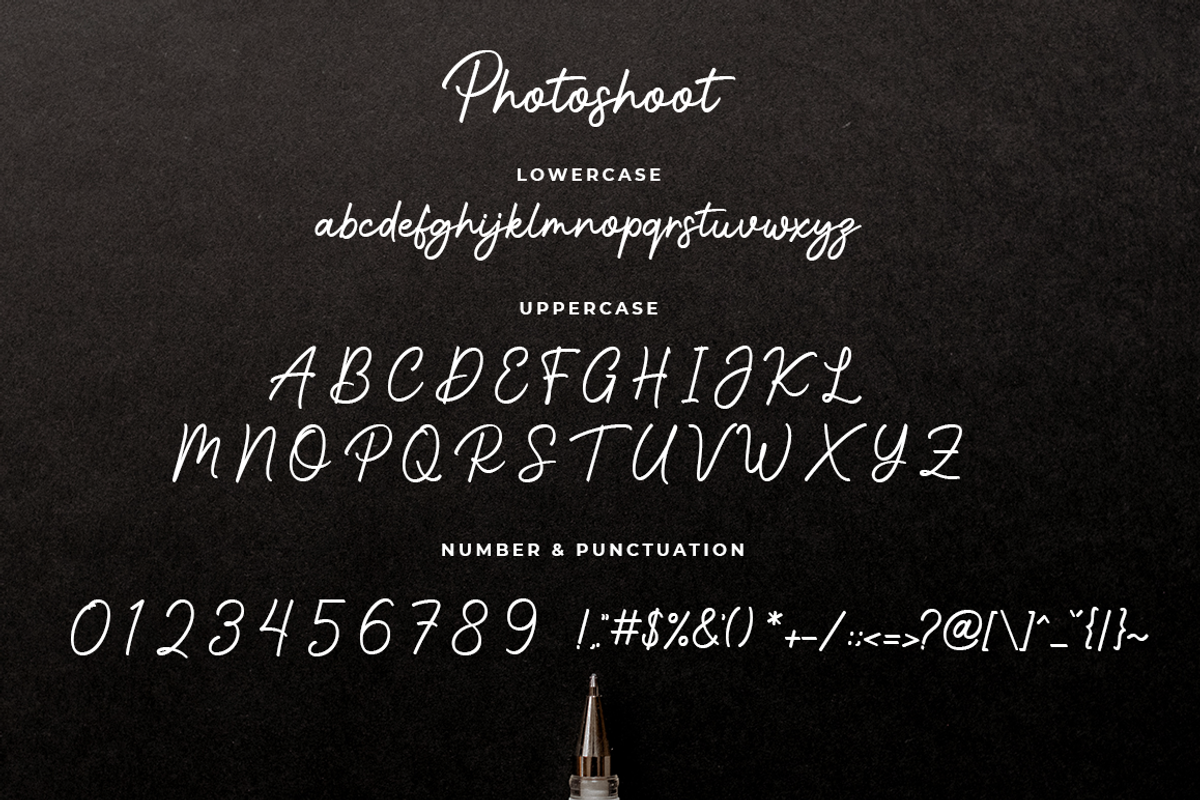 Photoshoot
LOWERCASE
abcdefghijklmnopqrstuvwxyz
UPPERCASE
ABCDEFGHIJKL
MNOPQRSTUVWXYZ
NUMBER & PUNCTUATION
0123456789 !.,"#$%&'()*+-/:;<=>?@[\]^_˘{|}~